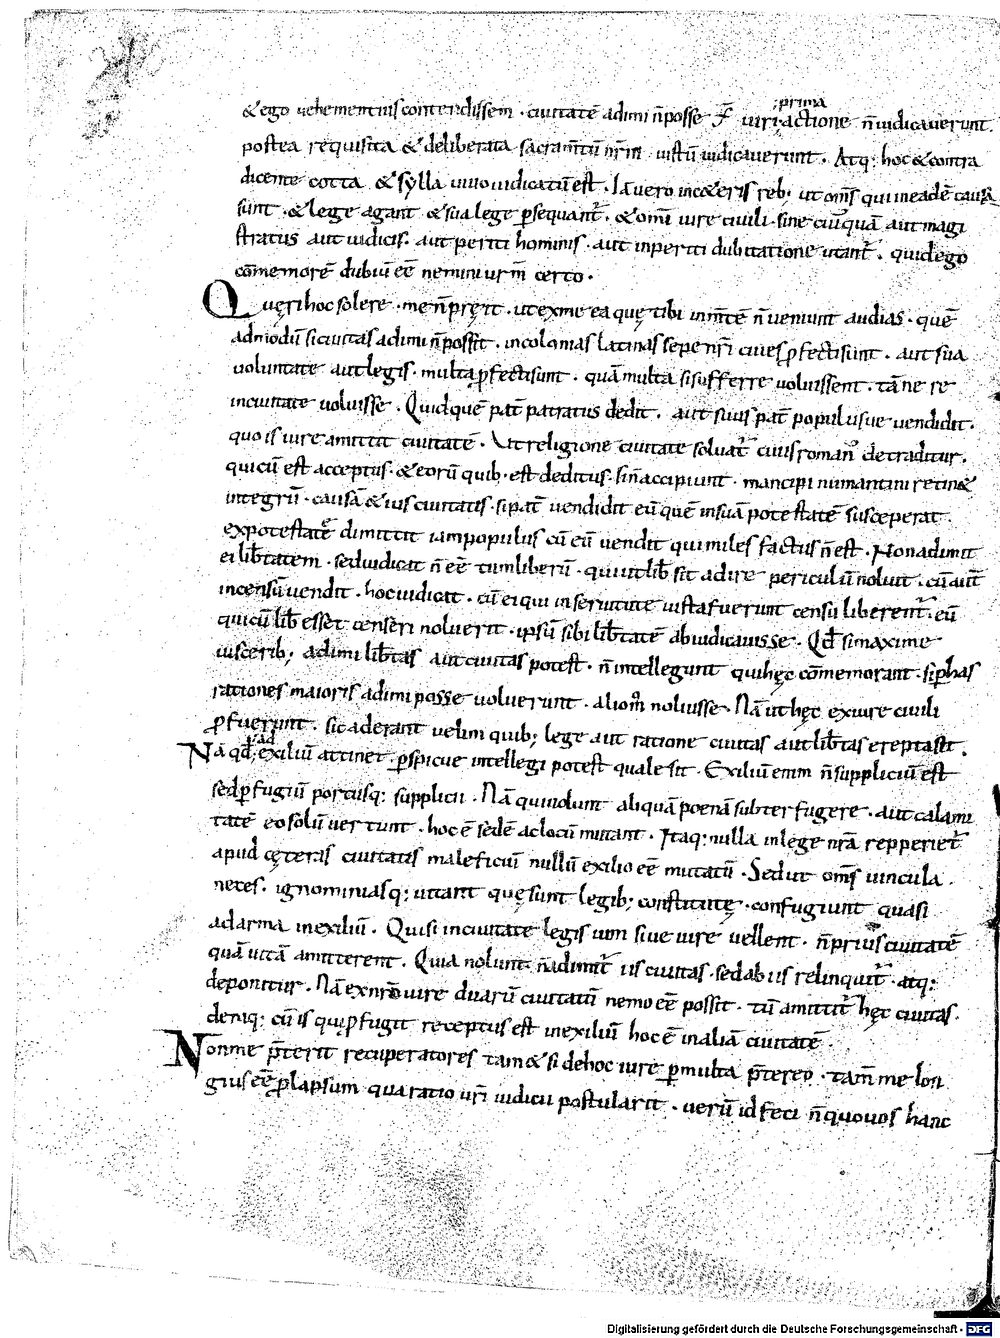 ;prima
&ego uehementius contendissem · ciuitatē adimi n̄ posse · uiri; actione n̄ iudicauerunt.
postea requisita & deliberata sacram̄tū nr̄m iustū iudicauerunt. Atq; hoc & contra
dicente cotta & sylla uiuo iudicatū est. Iā uero in cæteris reb; ut om̄s qui in eadē causa
sunt · & lege agant & sua lege ꝑsequant̄ · & omi iure ciuili · sine cuiusquā aut magi
stratus aut iudicis · aut periti hominis · aut inperiti dubitatione utant̄ · quid ego
cōmemorē dubiū eē nemini ur̄m certo ·
Quęri hoc solere · me n̄ pręterit · ut ex me ea quę tibi in m̄tē n̄ ueniunt audias · quē
admodū si ciuitas adimi n̄ possit · in colonias latinas sepe nr̄i ciues ꝓfecti sunt · aut sua
uoluntate aut legis · multa ꝓfecti sunt · quā multā si sufferre uoluissent · tā ne re
in ciuitate uoluisse · Quid quē pat̄ patratus dedit · aut suus pat̄ populusue uendidit ·
quo is iure amittit ciuitatē · Ut religione ciuitate soluat̄ ciuis roman; detraditur.
qui cū est acceptus · & eorū quib; est deditus · si n̄ accipiunt · mancipi numantini retin&
integrū · causā & ius ciuitatis · si pat̄ uendidit eū quē in suā potestatē susceperat
ex potestatē dimittit iam populus cū eū uendit qui miles factus n̄ est · Non adimit
ei lib̄tatem · sed iudicat n̄ eē eum liberū · qui ut lib̄ sit adire periculū noluit · cū aūt
incensū uendit · hoc iudicat · cū ei qui in seruitute iusta fuerunt censu liberent̄ · eū
qui cū lib̄ esset censeri noluerit · ipsū sibi lib̄tatē abiudicauisse · Qd̄ si maxime
uisceríb; adimi lib̄tas aut ciuitas potest · n̄ intellegunt qui hęc cōmemorant · si ꝑ has
rationes maioris adimi posse uoluerunt · alio m̄ noluisse · Nā ut hęc ex iure ciuili
ꝓfuerunt · sic aderant uelim quib; lege aut ratione ciuitas aut lib̄tas erepta sit ·
Nā qd̄ ad exiliū attinet ꝑspicue intellegi potest quale sit · Exiliū enim n̄ suppliciū est
sed ꝑfugiū portusq; supplicii · Nā qui uolunt aliquā poenā subterfugere · aut calami
tatē eo solū uertunt · hoc ē sedē ac locū mutant · Itaq; nulla in lege nr̄a repperiet̄
apud cęteras ciuitatis maleficiū nullū exilio eē mutatū · Sed ut om̄s uincula
neces · ignominiasq; uitant quę sunt legib; constitutę · confugiunt quasi
ad arma in exiliū · Qui si in ciuitate legis uim siue iure uellent · n̄ prius ciuitatē
quā uitā amitterent · Quia nolunt n̄ adimit̄ iis ciuitas · sed ab iis relinquit̄ · atq;
deponitur · Nā ex nr̄o iure duarū ciuitatū nemo eē possit · tū amittit̄ hęc ciuitas ·
deniq; cū is qui ꝓfugit receptus est in exiliū hoc ē in aliā ciuitatē ·
Non me p̄terit recuperatores tam & si de hoc iure ꝑmulta p̄tereo · tam̄ me lon
gius eē ꝓlapsum qua ratio uri iudicii postularit · uerū id feci n̄ quo uos hanc
Digitalisierung gefördert durch die Deutsche Forschungsgemeinschaft · DFG